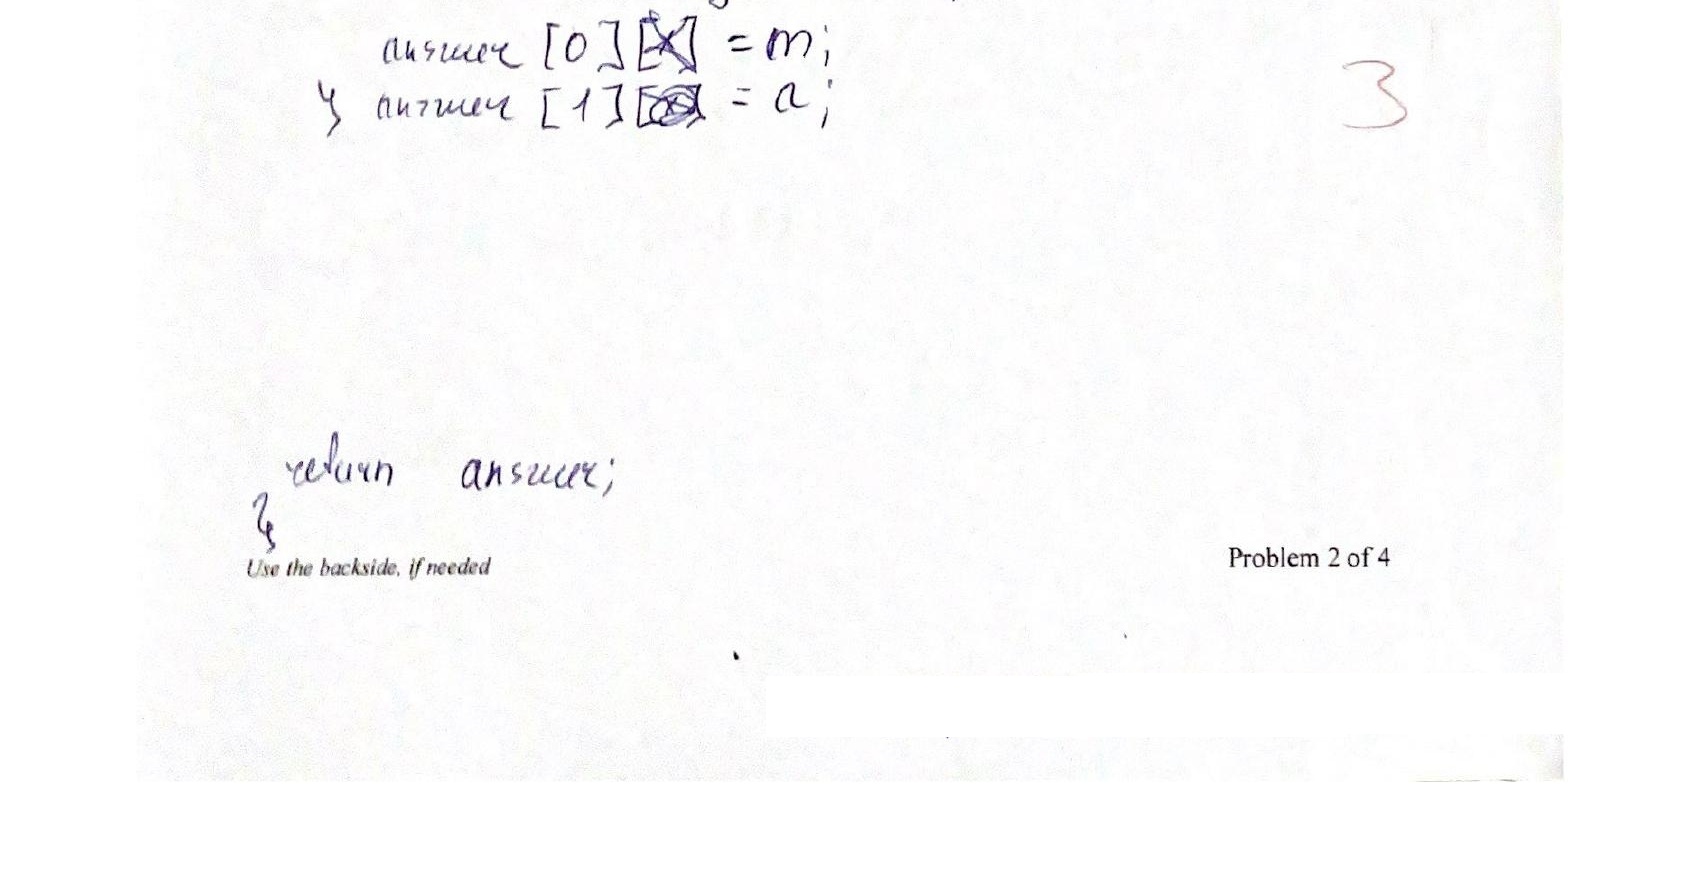 answer [0] = m;
} answer [1] = a;
3
return answer;
}
Use the backside, if needed
Problem 2 of 4